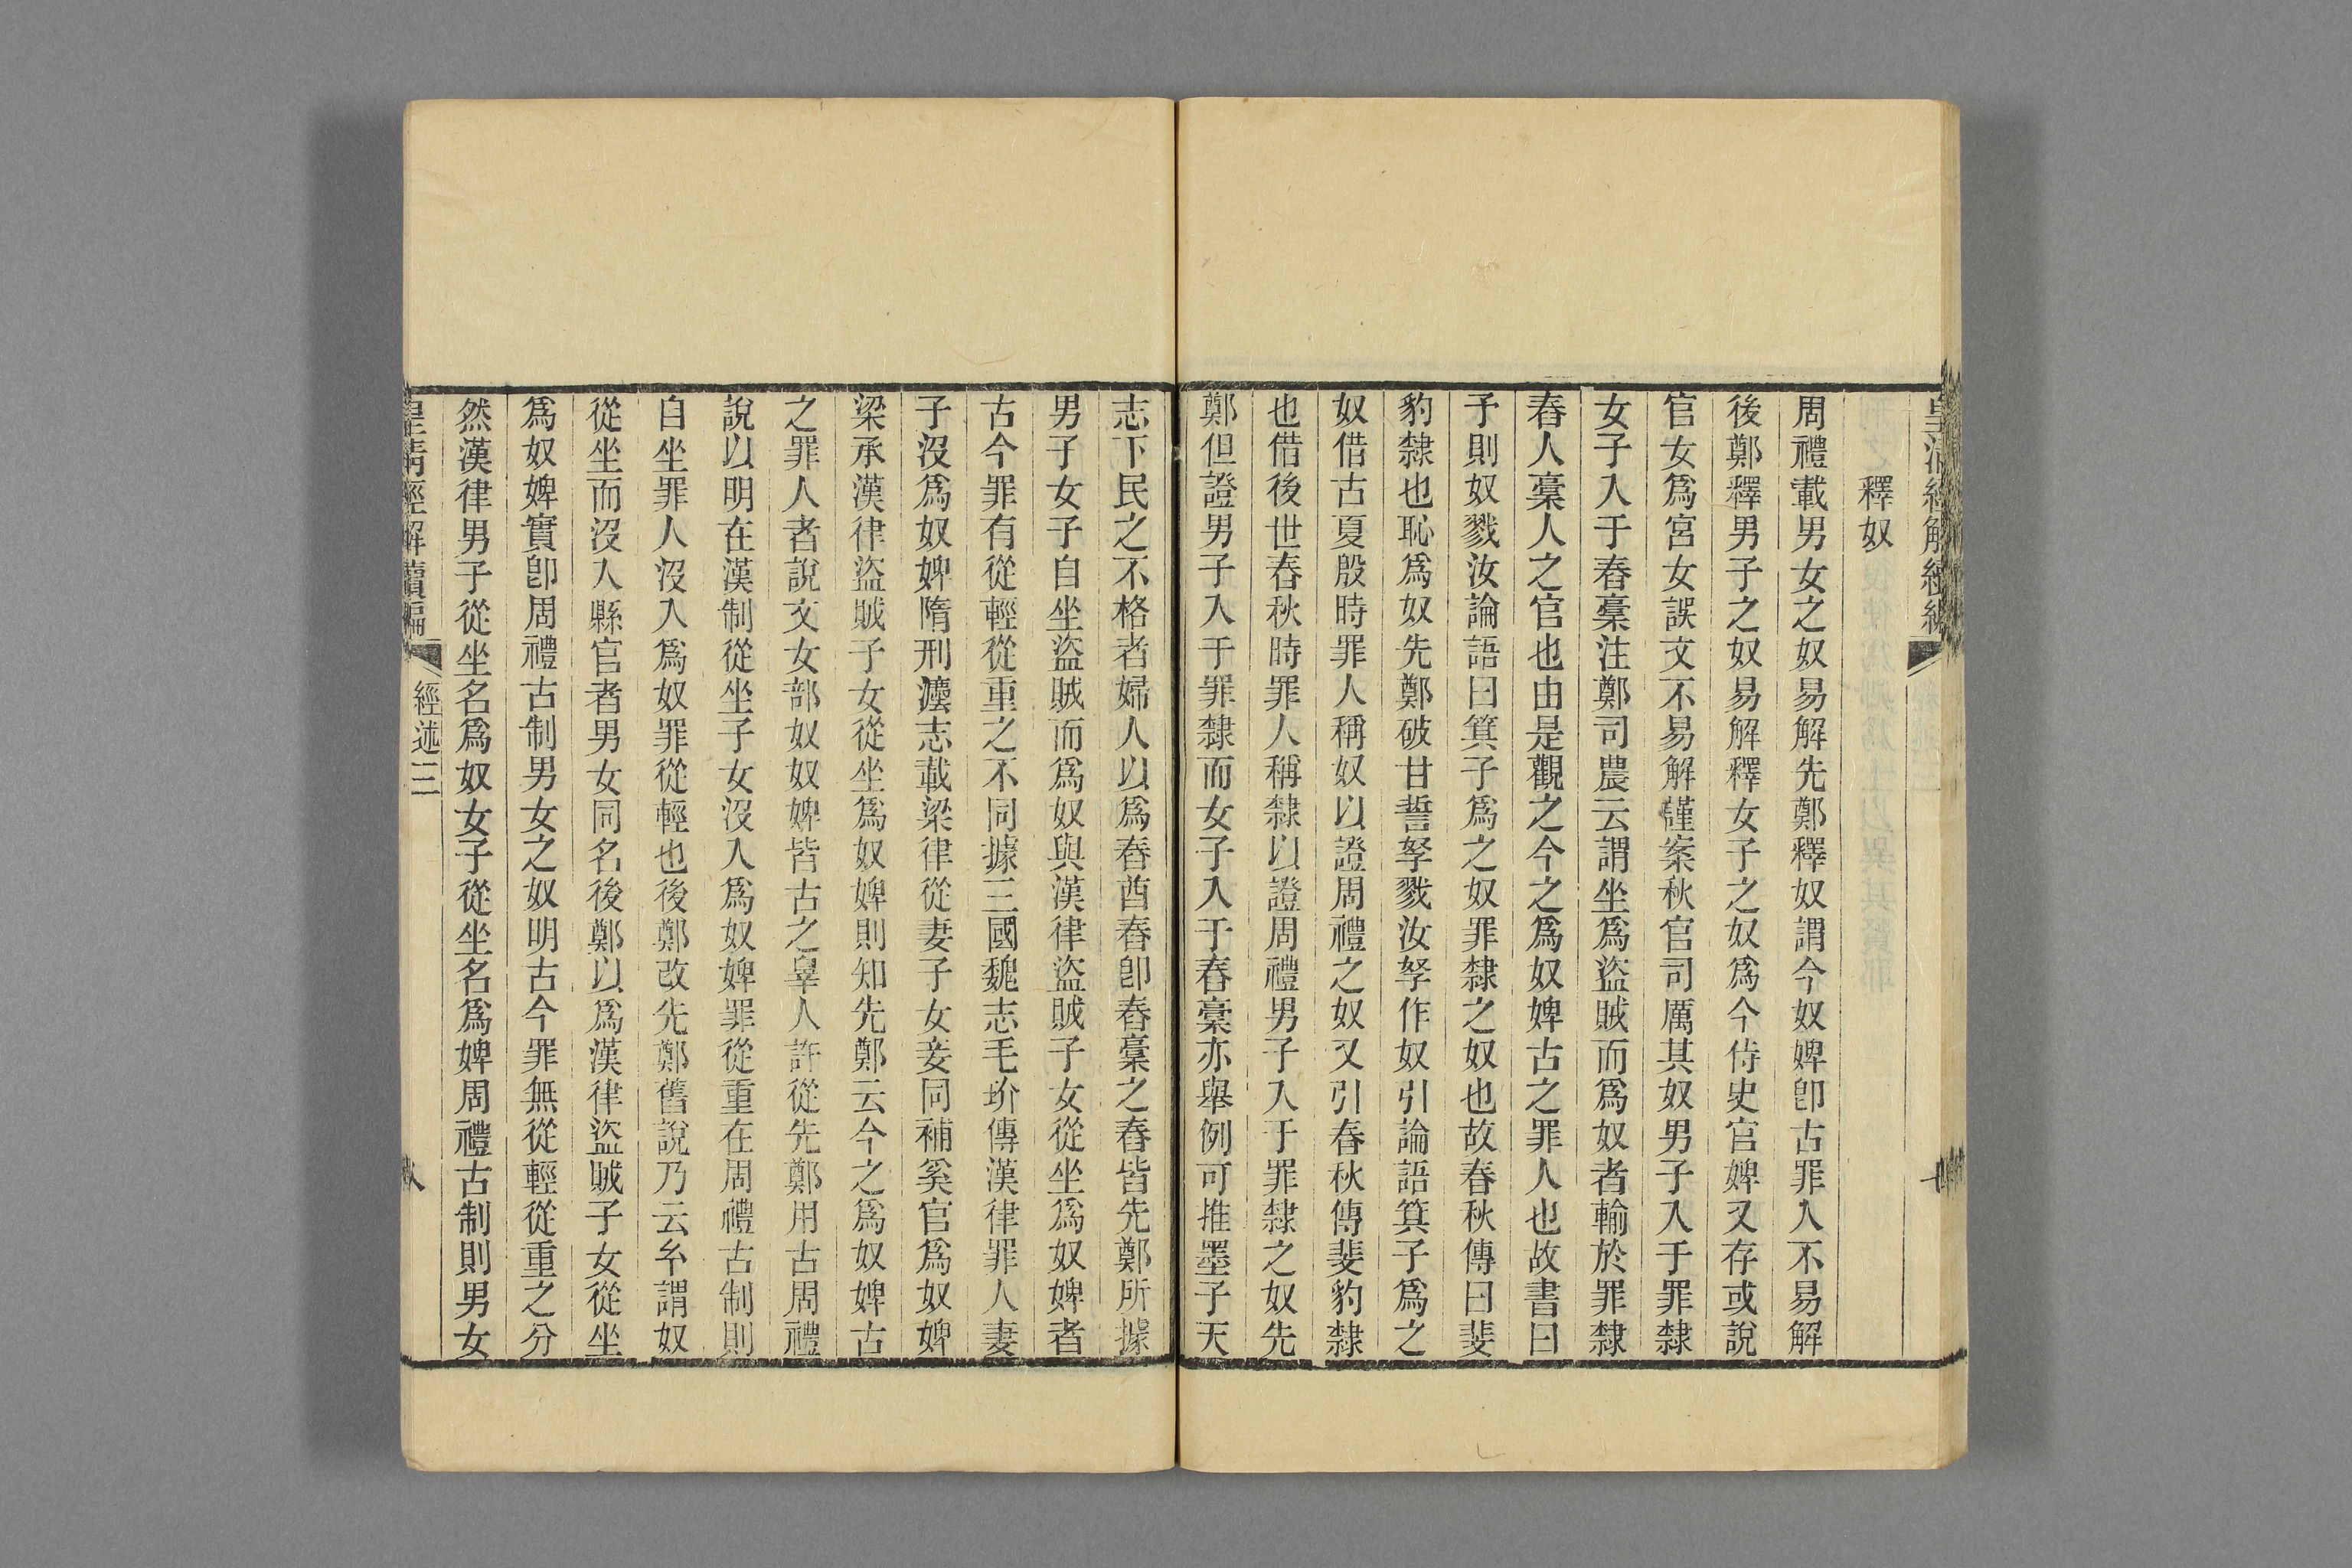 釋奴
周禮載男女之奴易解先鄭釋奴謂今奴婢卽古罪人不易解
後鄭釋男子之奴易解釋女子之奴爲今侍史官婢又存或說
官女爲宮女誤文不易解謹案秋官司厲其奴男子入于罪隸
女子入于舂稾注鄭司農云謂坐爲盜賊而爲奴者輸於罪隸
舂人稾人之官也由是觀之今之爲奴婢古之罪人也故書曰
予則奴戮汝論語曰箕子爲之奴罪隸之奴也故春秋傳曰斐
豹隸也恥爲奴先鄭破甘誓孥戮汝孥作奴引論語箕子爲之
奴借古夏殷時罪人稱奴以證周禮之奴又引春秋傳斐豹隸
也借後世春秋時罪人稱隸以證周禮男子入于罪隸之奴先
鄭但證男子入于罪隸而女子入于舂稾亦舉例可推墨子天
志下民之不格者婦人以爲舂酋舂卽舂稾之舂皆先鄭所據
男子女子自坐盜賊而爲奴與漢律盜賊子女從坐爲奴婢者
古今罪有從輕從重之不同據三國魏志毛玠傳漢律罪人妻
子沒爲奴婢隋刑灋志載梁律從妻子女妾同補奚官爲奴婢
梁承漢律盜賊子女從坐爲奴婢則知先鄭云今之爲奴婢古
之罪人者說文女部奴奴婢皆古之辠人許從先鄭用古周禮
說以明在漢制從坐子女沒入爲奴婢罪從重在周禮古制則
自坐罪人沒入爲奴罪從輕也後鄭改先鄭舊說乃云今謂奴
從坐而沒入縣官者男女同名後鄭以爲漢律盜賊子女從坐
爲奴婢實卽周禮古制男女之奴明古今罪無從輕從重之分
然漢律男子從坐名爲奴女子從坐名爲婢周禮古制則男女
皇淸經解續編
經述三